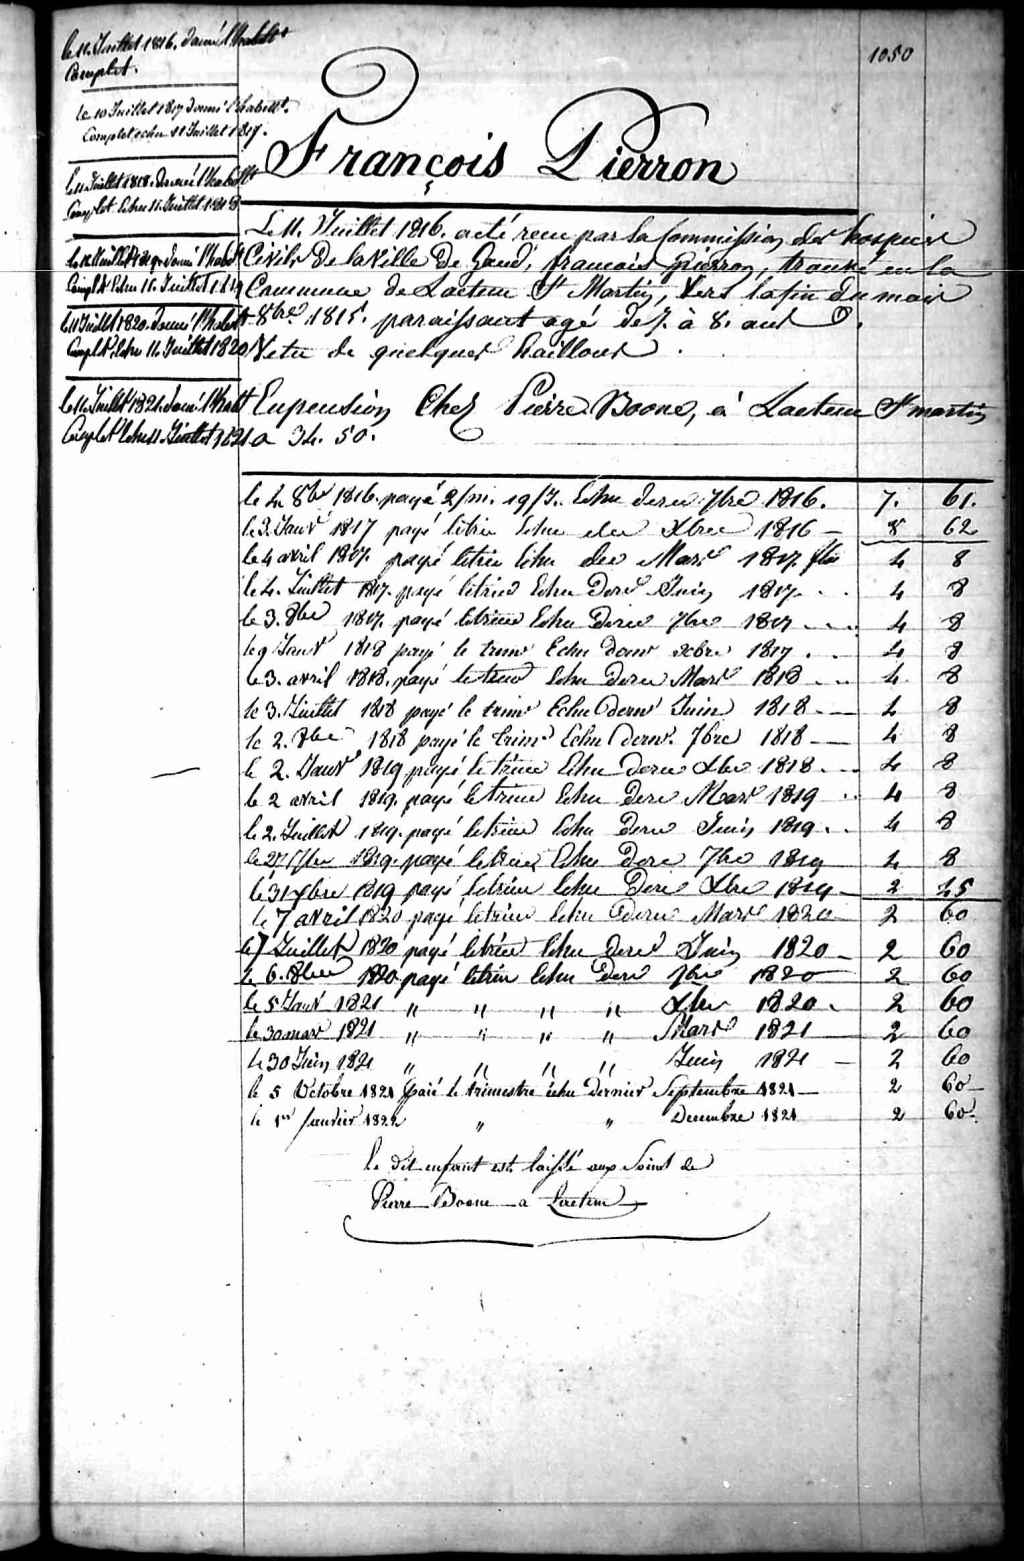 1050
le 11. Juillet 1816. donné l'habillt
Complet.
le 10 Juillet 1817 donné l'habillt.
Complet echu 11 Juillet 1817.
le 11. Juillet 1818. donné l'habillt
Complet Echu 11. Juillet 1818
Juillet 1819. donné l'habillt
Complt Echu 11. Juillet 1819
le 11 Juillet 1820. donné l'habillt
Complt. Echu 11. Juillet 1820
le 11. Juillet 1821. donné l'habillt
Complet Echu 11. Juillet 1821
François Pierron
Le 11. Juillet 1816. a été recu par la Commission des hospices
Civils de la Ville de Gand, francois pierron, trouvé en la
Commune de Laetem St Martin, Vers la fin du mois
8bre 1815. paraissant agé de 7. à 8. ans.
Vetu de quelques haillons.
En pension Chez Pierre Boone, à Laetem St martin
a 34. 50.
le 4 8bre 1816. payé 2/m. 19/J. Echu dern 7bre 1816. 7. 61.
le 3. Janvr 1817 payé letrim Echu der Xbre 1816 8 62
le 4 avril 1817. payé letrim Echu der Mars 1817. 4 8
le 4. Juillet 1817. payé letrim Echu Dern Juin 1817. 4 8
le 3. 8bre 1817. payé letrim Echu Dern 7bre 1817 4 8
le 9 Janvr 1818 payé le trimr Echu dernr Xbre 1817 4 8
le 3. avril 1818. payé letrim Echu dern Mars 1818 4. 8
le 3. Juillet 1818 payé le trimr Echu dernr Juin 1818 4 8
le 2. 8bre 1818 payé le trimr Echu dernr. 7bre 1818 4 8
le 2. Janvr 1819 payé letrim Echu dern Xbre 1818. 4 8
le 2 avril 1819. payé letrim Echu Dern Mars 1819 4 8
le 2. Juillet 1819. payé letrim Echu Dern Juin 1819. 4 8
le 27 1819. payé letrim Echu Dern 7bre 1819 4 8
le 31 Xbre 1819 payé letrim Echu Dern Xbre 1819 2 45
le 7 avril 1820 payé letrim Echu Dern Mars 1820 2 60
le 7 Juillet 1820 payé letrim Echu Dern Juin 1820 2 60
le 6. 8bre 1820 payé letrim Echu Dern 7bre 1820 2 60
le 5 Janvr 1821 " " " " Xbre 1820. 2 60
le 30 mars 1821 " " " " Mars 1821 2 60
le 30 Juin 1821 " " " " Juin 1821 2 60
le 5 Octobre 1821 Paié le trimestre échu Dernier Septembre 1821 2 60
le 1er fevrier 1822 " " Decembre 1821 2 60.
Le dit enfant est laissé aux Soins de
Pierre Boone a Laetem